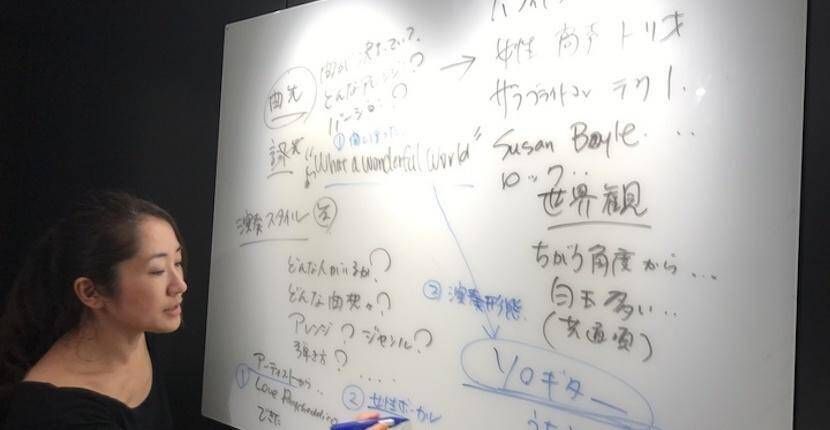 曲先
何が決まってい?
どんなアレンジ?
バージョン?
① 曲にはった
"What a wonderful world"
演奏スタイル
どんな人がいるか?
どんな曲想々?
アレンジ? ジャンル?
弾き方?
.....
① アーティストから..
Love Psychedelico
② 女性ボーカル
→
女性 高声 トリオ
サラブライトマン テクノ.
Susan Boyle...
ロック..
世界観
ちがう角度から...
白玉多い..
(共通項)
③ 演奏形態
ソロギター